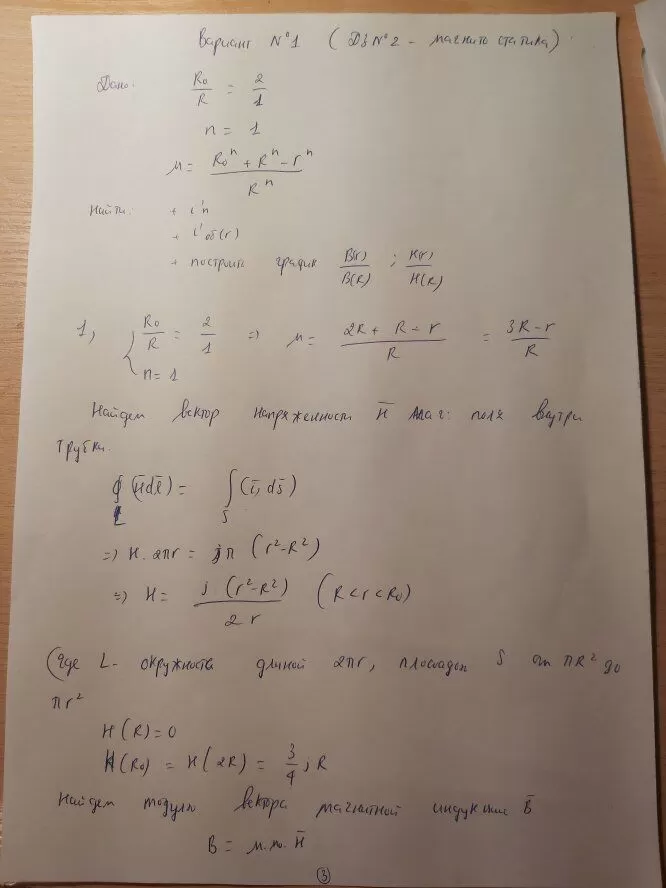 Вариант №1 (Дз №2 - магнитостатика)
Дано: R₀/R = 2/1
n = 1
μ = (R₀ⁿ + Rⁿ - rⁿ)/Rⁿ
Найти: + i'п
+ i'об(r)
+ построить график B(r)/B(R) ; H(r)/H(R)
1, { R₀/R = 2/1 => μ = (2R + R - r)/R = (3R - r)/R
n = 1
Найдем вектор напряженности H̄ маг: поля внутри
трубки.
∮_L (H̄dl̄) = ∫_S (ī, ds̄)
=> H · 2πr = jπ (r² - R²)
=> H = j (r² - R²)/2r (R < r < R₀)
(где L - окружность длиной 2πr, площадью S от πR² до
πr²
H(R) = 0
H(R₀) = H(2R) = 3/4 j R
Найдем модуль вектора магнитной индукции B̄
B = μ.μ₀. H̄
3